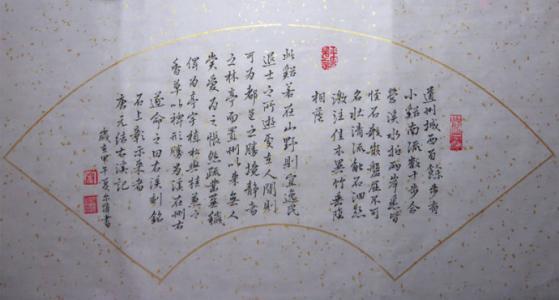 道州城西百餘步有
小谿南流數十步合
營溪水抵兩岸悉皆
怪石欹嵌盤屈不可
名狀清流觸石洄懸
激注佳木異竹垂陰
相蔭
此谿若在山野則宜逸民
退士之所遊處在人間則
可為都邑之勝境靜者
之林亭而置州以來無人
賞愛為之悵然疏鑿蕪穢
俾為亭宇植松與桂兼之
香草以裨形勝為溪在州右
遂命之曰右溪刻銘
石上彰示來者
唐元結右溪記
歲在甲午書